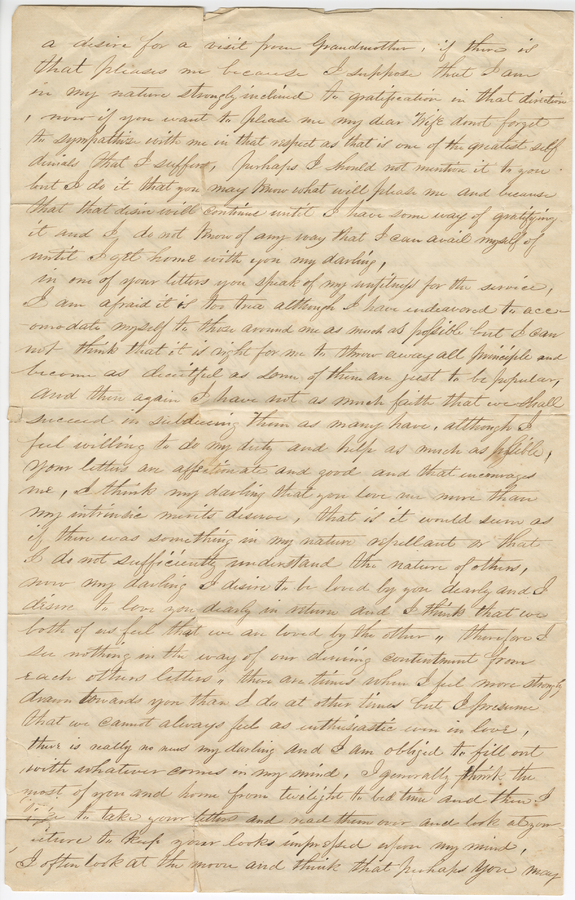 a desire for a visit from Grandmother, if there is
that pleases me because I suppose that I am
in my nature strongly inclined to gratification in that direction
, now if you want to please me my dear Wife dont forget
to sympathise with me in that respect as that is one of the greatest self
denials that I suffer, perhaps I should not mention it to you
but I do it that you may know what will please me and because
that that desire will continue until I have some way of gratifying
it and I do not know of any way that I can avail myself of
until I get home with you my darling,
in one of your letters you speak of my unfitness for the service,
I am afraid it is too true although I have endeavored to acc-
omodate myself to those around me as much as possible but I can
not think that it is right for me to throw away all principle and
become as deceitful as some of them are just to be popular,
and then again I have not as much faith that we shall
succeed in subdueing them as many have, although I
feel willing to do my duty and help as much as possible,
Your letters are affectionate and good and that encourages
me, I think my darling that you love me more than
my intrinsic merits deserve, that is it would seem as
if there was something in my nature repellant or that
I do not sufficiently understand the nature of others,
now my darling I desire to be loved by you dearly and I
desire to love you dearly in return and I think that we
both of us feel that we are loved by the other, therefore I
see nothing in the way of our deriving contentment from
each others letters, there are times when I feel more strongly
drawn towards you than I do at other times but I presume
that we cannot always feel as enthusiastic even in love,
there is really no news my darling and I am obliged to fill out
with whatever comes in my mind, I generally think the
most of you and home from twilight to bed time and then I
to take your letters and read them over and look at your
picture to keep your looks impressed upon my mind,
I often look at the moon and think that perhaps you may